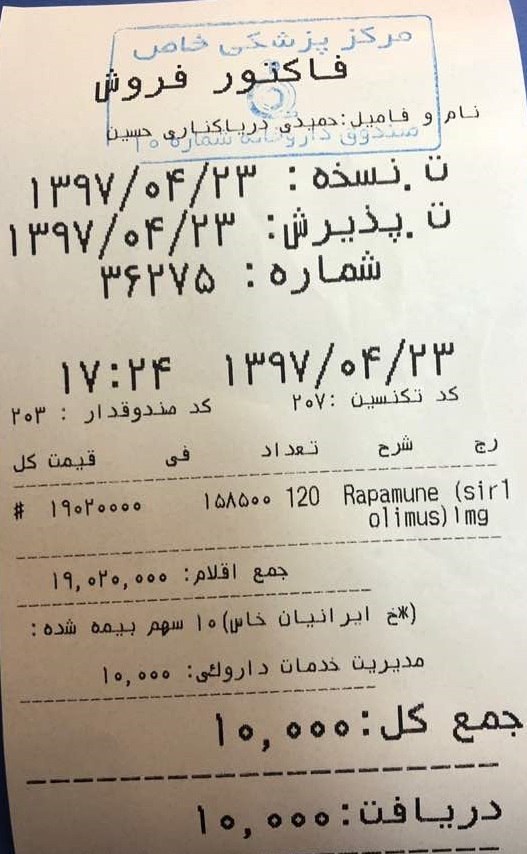 مرکز پزشکی خاص
فاکتور فروش
نام و فامیل:حمیدی دریاکناری حسین
صندوق داروخانه شماره ۱۰
ت.نسخه: ۱۳۹۷/۰۴/۲۳
ت.پذیرش: ۱۳۹۷/۰۴/۲۳
شماره: ۳۶۲۷۵
۱۳۹۷/۰۴/۲۳ ۱۷:۲۴
کد تکنسین :۲۰۷ کد صندوقدار : ۲۰۳
رج شرح تعداد فی قیمت کل
Rapamune (sirl 120 ۱۵۸۵۰۰ ۱۹۰۲۰۰۰۰ #
olimus)1mg
جمع اقلام: ۱۹,۰۲۰,۰۰۰
(*خ ایرانیان خاص)۱۰ سهم بیمه شده:
مدیریت خدمات داروئی: ۱۰,۰۰۰
جمع کل: ۱۰,۰۰۰
دریافت: ۱۰,۰۰۰